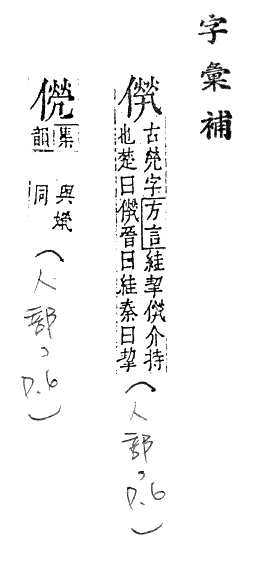 字彙補
儝
古煢字方言絓挈儝介持
也楚曰儝晉曰絓秦曰挈
(人部,p.6)
集
韻
與煢
同
(人部,p.6)